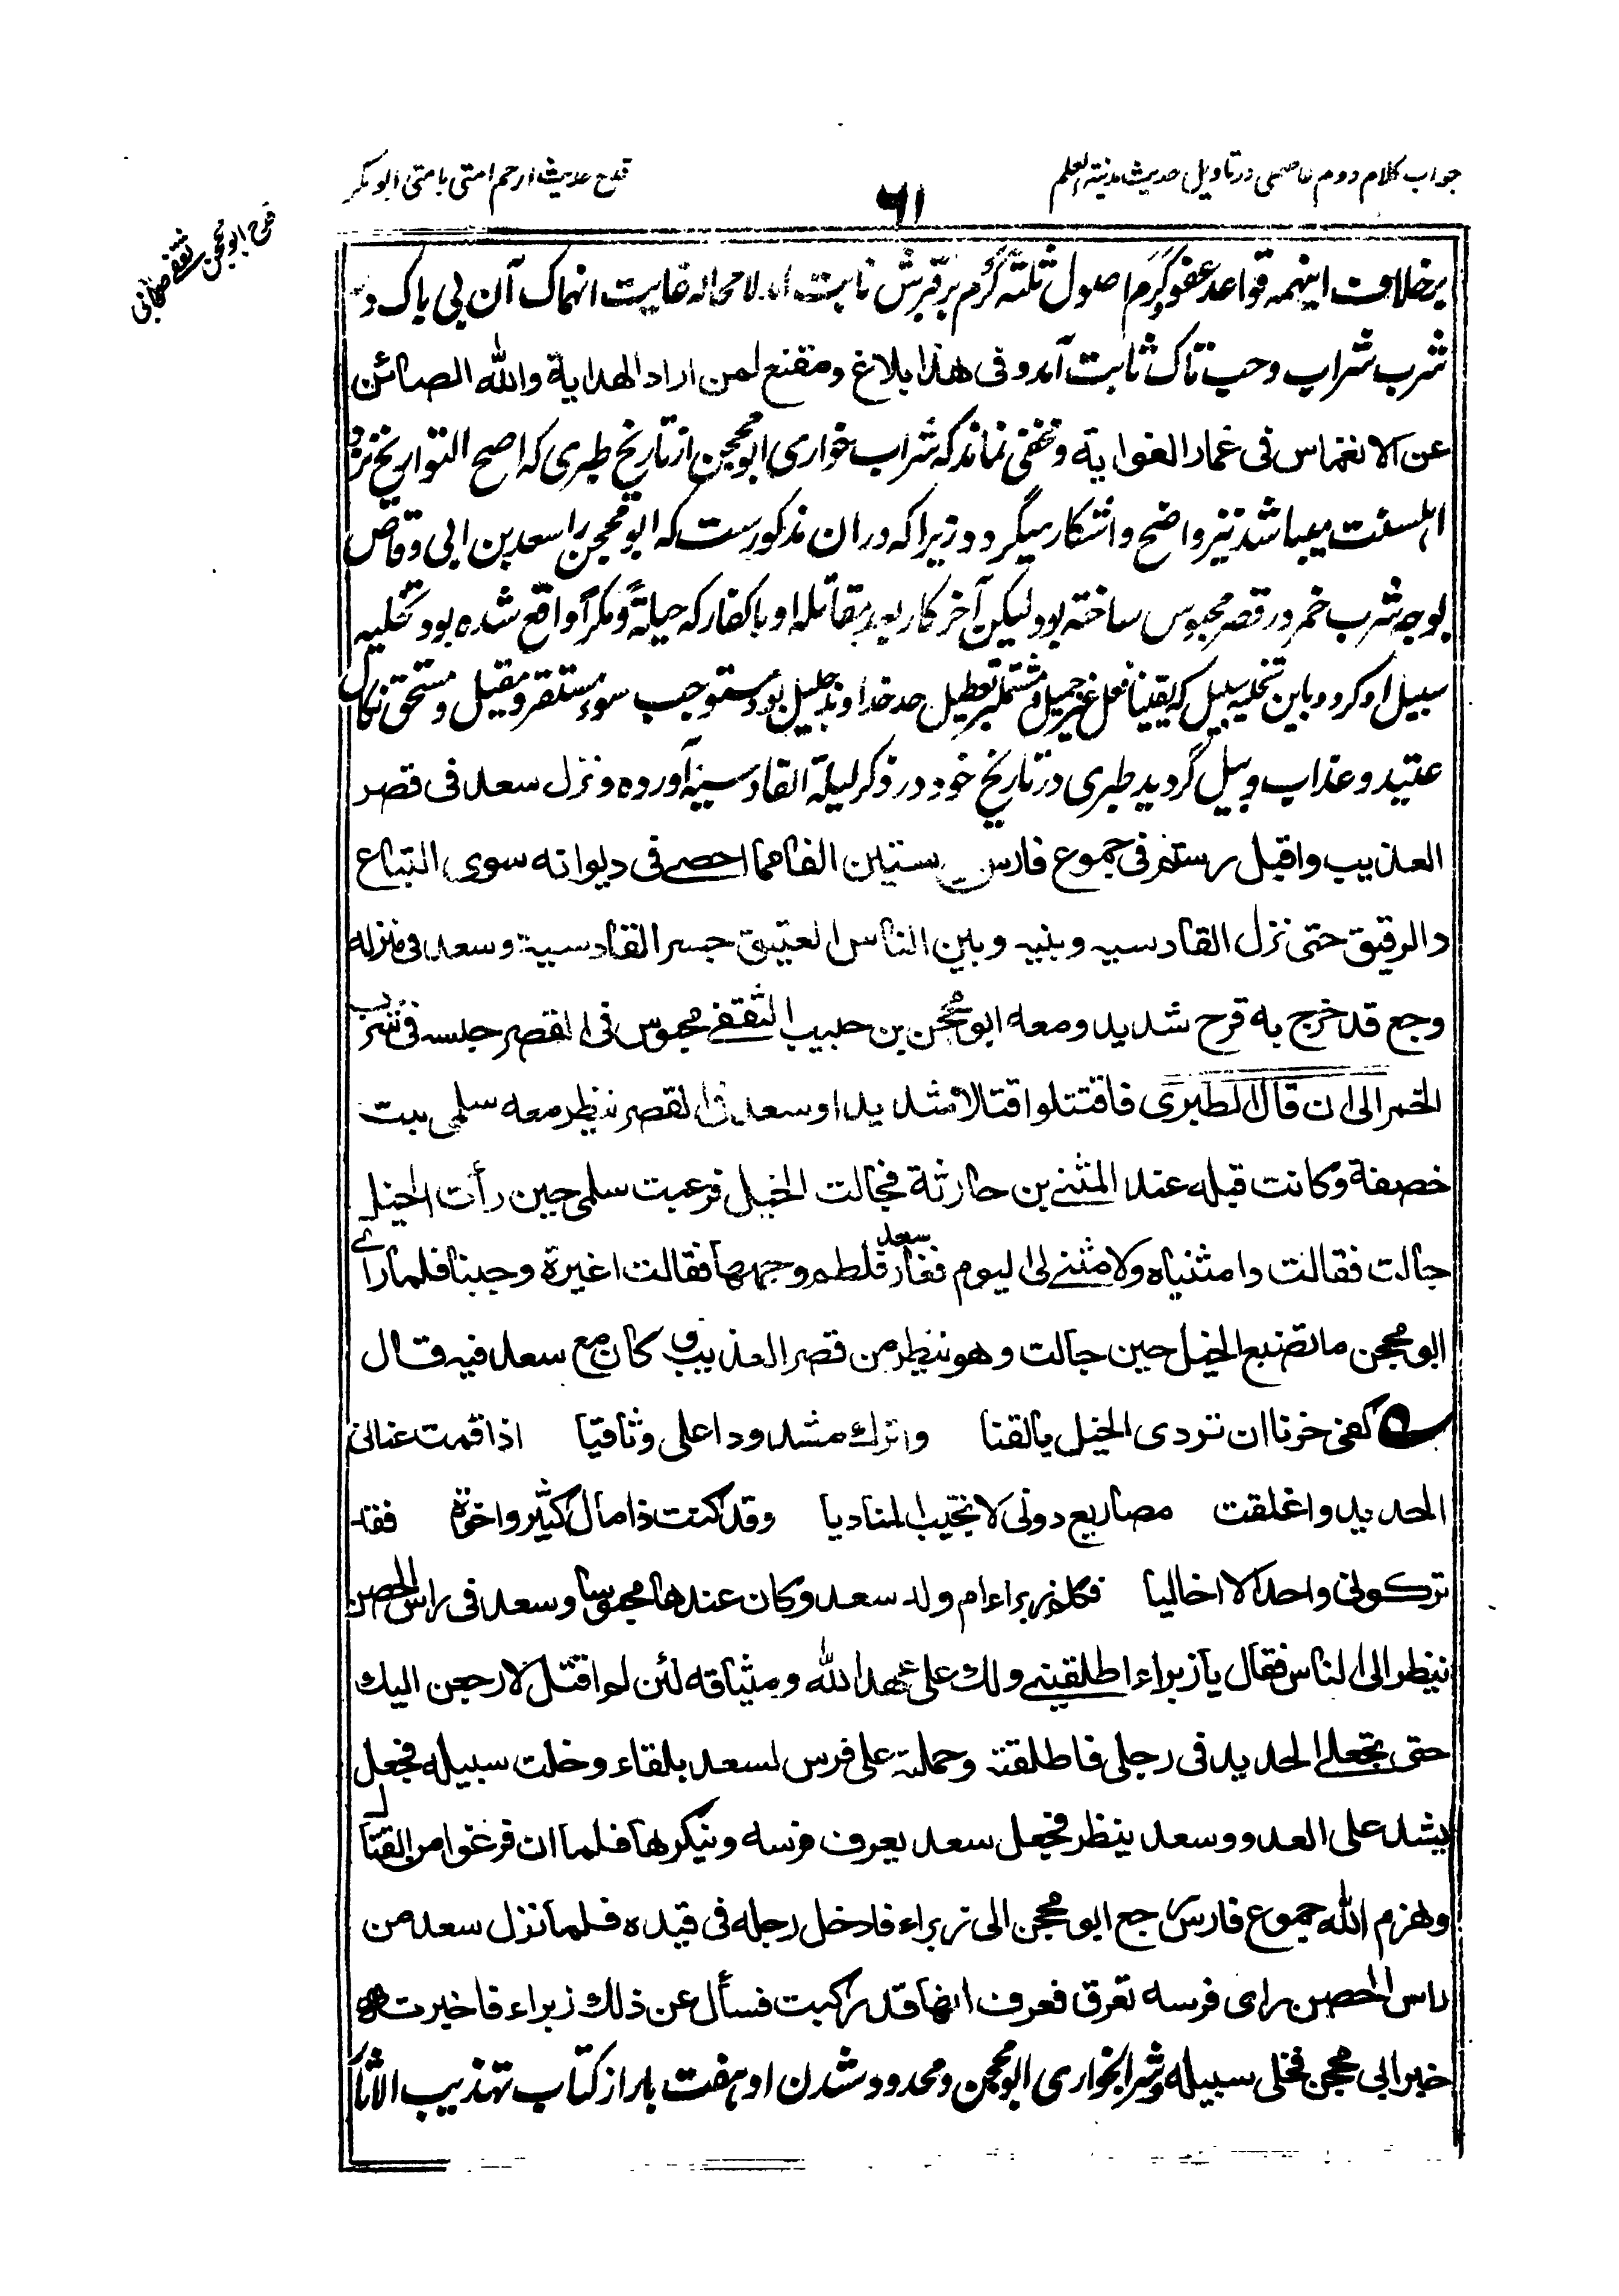 جواب کلام دوم عاصمی در تاویل حدیث مدینة العلم
۶۱
قدح حدیث ارحم امتی بامتی ابوبکر
قدح ابو محجن ثقفی صحابی
برخلاف اینهمه قواعد عفو و کرم اصول ثلثه کرم بر قبرش ثابت لا محاله غایت انهماک آن بی باک در
شرب شراب و حب تاک ثابت آمد و فی هذا بلاغ و مقنع لمن اراد الهدایة والله الصائن
عن الانغماس فی غمار الغوایة و مخفی نماند که شراب خواری ابو محجن از تاریخ طبری که اصح التواریخ نزد
اهلسنت میباشد نیز واضح و اشکار میگردد زیرا که دران مذکورست که ابو محجن را سعد بن ابی وقاص
بوجه شرب خمر در قصر محبوس ساخته بود لیکن آخر کار بعد مقاتله او با کفار که حیلةً و مکراً واقع شده بود تخلیه
سبیل او کرد و باین تخلیه سبیل که یقینا فعل غیر جمیل و مشتمل بر تعطیل حد خداوند جلیل بود مستوجب سوء مستقر و مقیل و مستحق نکال
عتید و عذاب وبیل گردید طبری در تاریخ خود در ذکر لیلة القادسیة آورده و نزل سعد فی قصر
العذیب واقبل رستم فی جموع فارس ستین الفا مما احصے فی دیوانه سوی التباع
والرقیق حتی نزل القادسیه وبینه وبین الناس العتیق جسر القادسیة وسعد فی منزله
وجع قد خرج به قرح شدید ومعه ابو محجن بن حبیب الثقفے محبوس فی القصر حبسه فی شرب
الخمر الی ان قال الطبری فاقتتلوا قتالا شدیدا وسعد فی القصر ینظر معه سلمی بنت
خصفة وکانت قبله عند المثنے بن حارثة فجالت الخیل فرعبت سلمی حین رأت الخیل
جالت فقالت وا مثنیاه ولا مثنے لی الیوم فغار سعد فلطم وجهها فقالت اغیرة وجبنا فلما رائے
ابو محجن ما تصنع الخیل حین جالت وهو ینظر من قصر العذیب و کان مع سعد فیه قال
کفی حزنا ان تردی الخیل بالقنا واترك مشدودا علی وثاقیا اذا قمت عنانی
الحدید واغلقت مصاریع دونی لا تجیب المنادیا وقد کنت ذا مال کثیر واخوة فقد
ترکونی واحدا لا اخالیا فکلم زبراء ام ولد سعد وکان عندها محبوسا وسعد فی راس الحصن
ینظر الی الناس فقال یا زبراء اطلقینے ولك علی عهد الله ومیثاقه لئن لم اقتل لارجعن الیك
حتی تجعلے الحدید فی رجلی فاطلقته وحملته علی فرس لسعد بلقاء وخلت سبیله فجعل
یشد علی العدو وسعد ینظر فجعل سعد یعرف فرسه وینکرها فلما ان فرغوا من القتال
وهزم الله جموع فارس رجع ابو محجن الی زبراء فادخل رجله فی قیده فلما نزل سعد من
راس الحصن رای فرسه تعرق فعرف انها قد رکبت فسأل عن ذلك زبراء فاخبرته
خبر ابی محجن فخلی سبیله و شرابخواری ابو محجن و محدود شدن او هفت بار از کتاب تهذیب الآثار